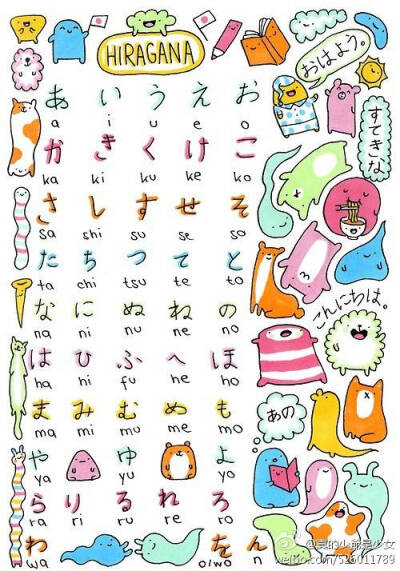 HIRAGANA
おはよう。
あ い う え お
a i u e o
すてきな
か き く け こ
ka ki ku ke ko
さ し す せ そ
sa shi su se so
た ち つ て と
ta chi tsu te to
な に ぬ ね の
na ni nu ne no
こんにちは。
は ひ ふ へ ほ
ha hi fu he ho
ま み む め も
ma mi mu me mo
あの
や ゆ よ
ya yu yo
ら り る れ ろ
ra ri ru re ro
わ を ん
wa o/wo n
weibo.com/526011789